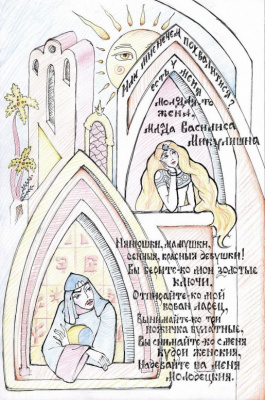 Или мне нечем похвалитися?
есть у меня
молодая-то
жена,
млада Василиса
Микулишна
Нянюшки, мамушки,
сенныя, красныя девушки!
Вы берите-ко мои золотые
ключи,
Отпирайте-ко мой
кован ларец,
Вынимайте-ко три
ножичка булатные,
Вы снимайте-ко с меня
кудри женския,
Надевайте на меня
молодецкия.